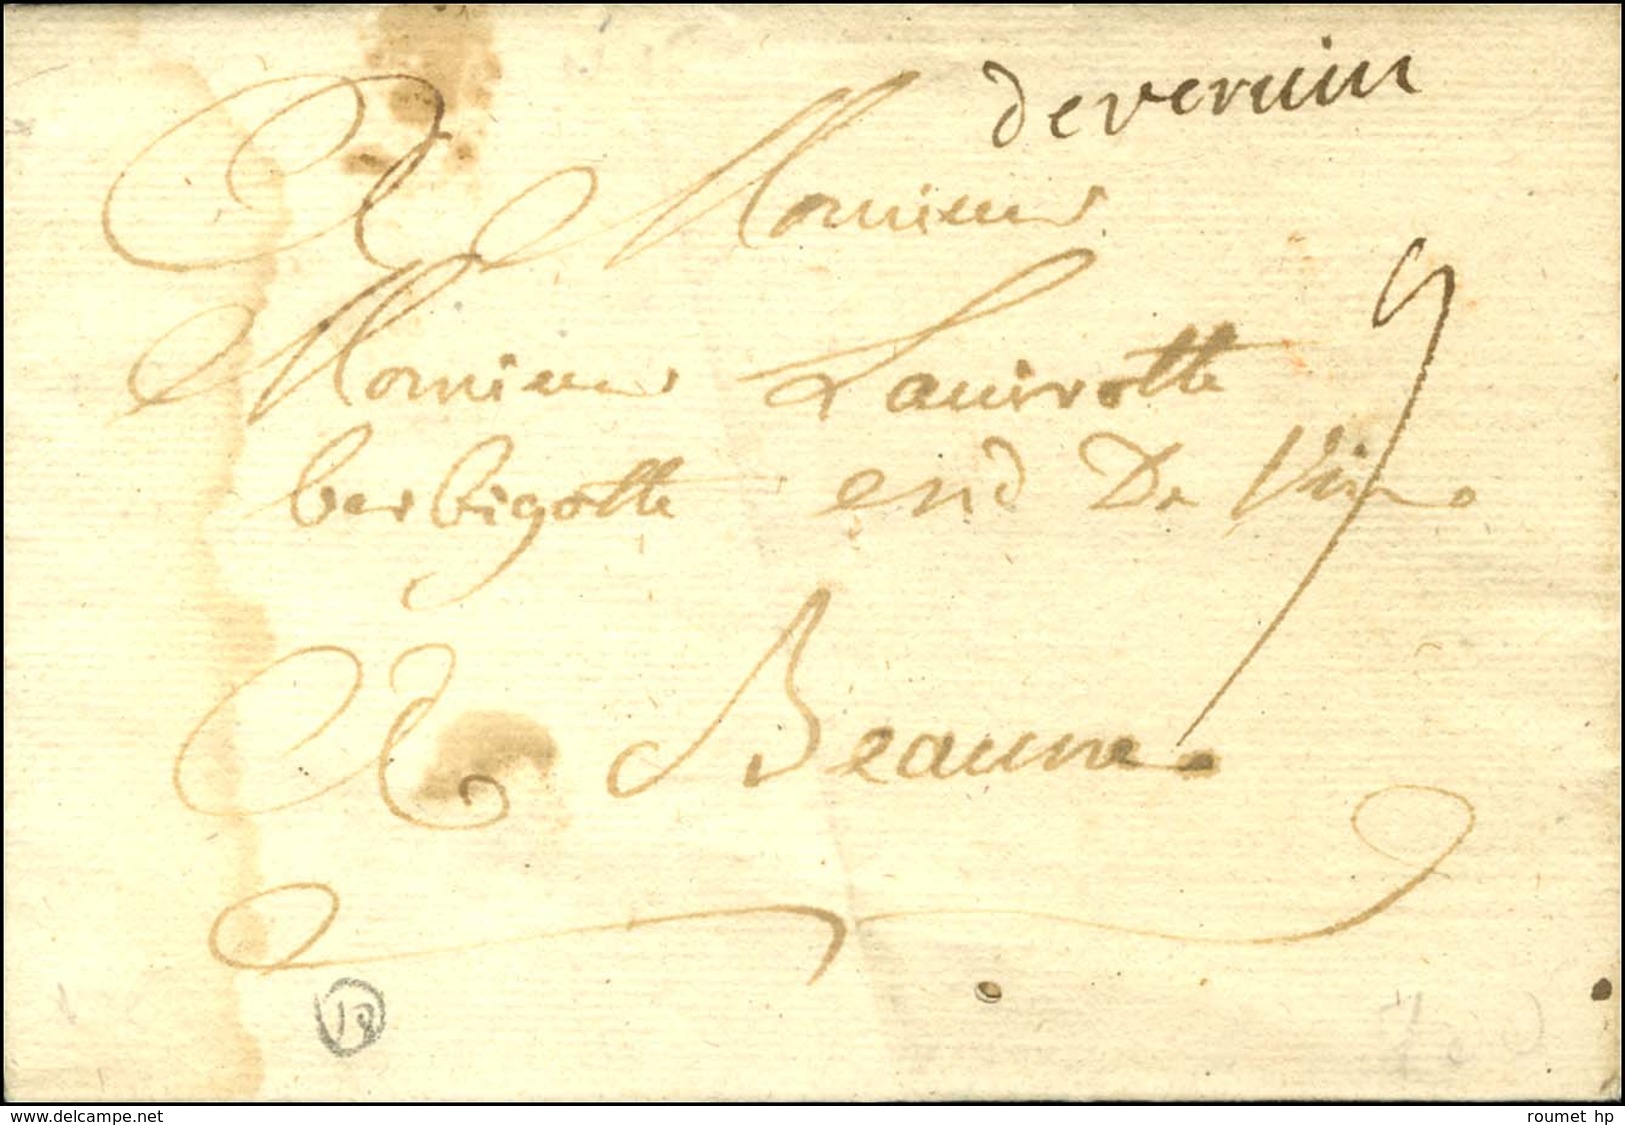 de vervin
A Monsieur
Monsieur Lavirotte
berbigotte end De Vin.
9
A Beaune.
www.delcampe.net
roumet hp